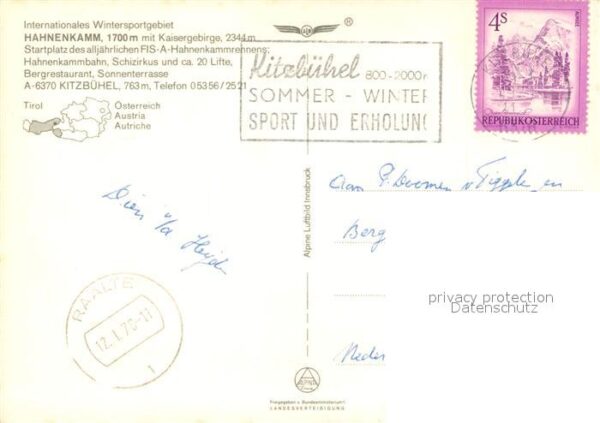 Internationales Wintersportgebiet
HAHNENKAMM, 1700 m mit Kaisergebirge, 2344 m
Startplatz des alljährlichen FIS-A-Hahnenkammrennens;
Hahnenkammbahn, Schizirkus und ca. 20 Lifte,
Bergrestaurant, Sonnenterrasse
A-6370 KITZBÜHEL, 763 m, Telefon 05356/2521
Tirol
Österreich
Austria
Autriche
Kitzbühel 800-2000m
SOMMER - WINTER
SPORT UND ERHOLUNG
4s
REPUBLIK ÖSTERREICH
Alpine Luftbild Innsbruck
Aan
en
Berg
Neder
RAALTE
12.1.76-11
1
privacy protection
Datenschutz
ALPINE
Freigegeben v. Bundesministerium f.
LANDESVERTEIDIGUNG